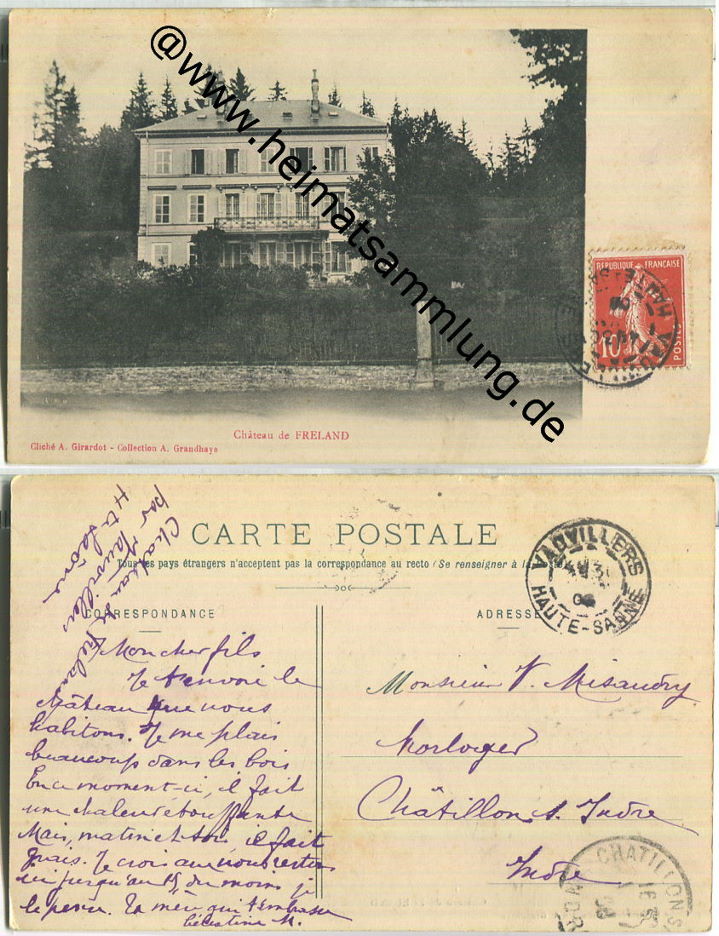 @www.heimatsammlung.de
REPUBLIQUE FRANÇAISE
10
POSTES
Château de FRELAND
Cliché A. Girardot - Collection A. Grandhaye
Chateau de Freland
par Vauvillers
Hte Saône
CARTE POSTALE
Tous les pays étrangers n'acceptent pas la correspondance au recto (Se renseigner à la
CORRESPONDANCE
ADRESSE
VAUVILLERS
HAUTE-SAONE
Mon cher fils
Je t'envoie le
château que nous
habitons. Je me plais
beaucoup dans les bois
En ce moment-ci, il fait
une chaleur étouffante
Mais, matin et soir, il fait
frais. Je crois que nous resterons
ici jusqu'au 15 du moins je
le pense. Ta mère qui t'embrasse
Célestine M.
Monsieur V. Misandry
Horloger
Châtillon s. Indre
Indre
CHATILLON-S